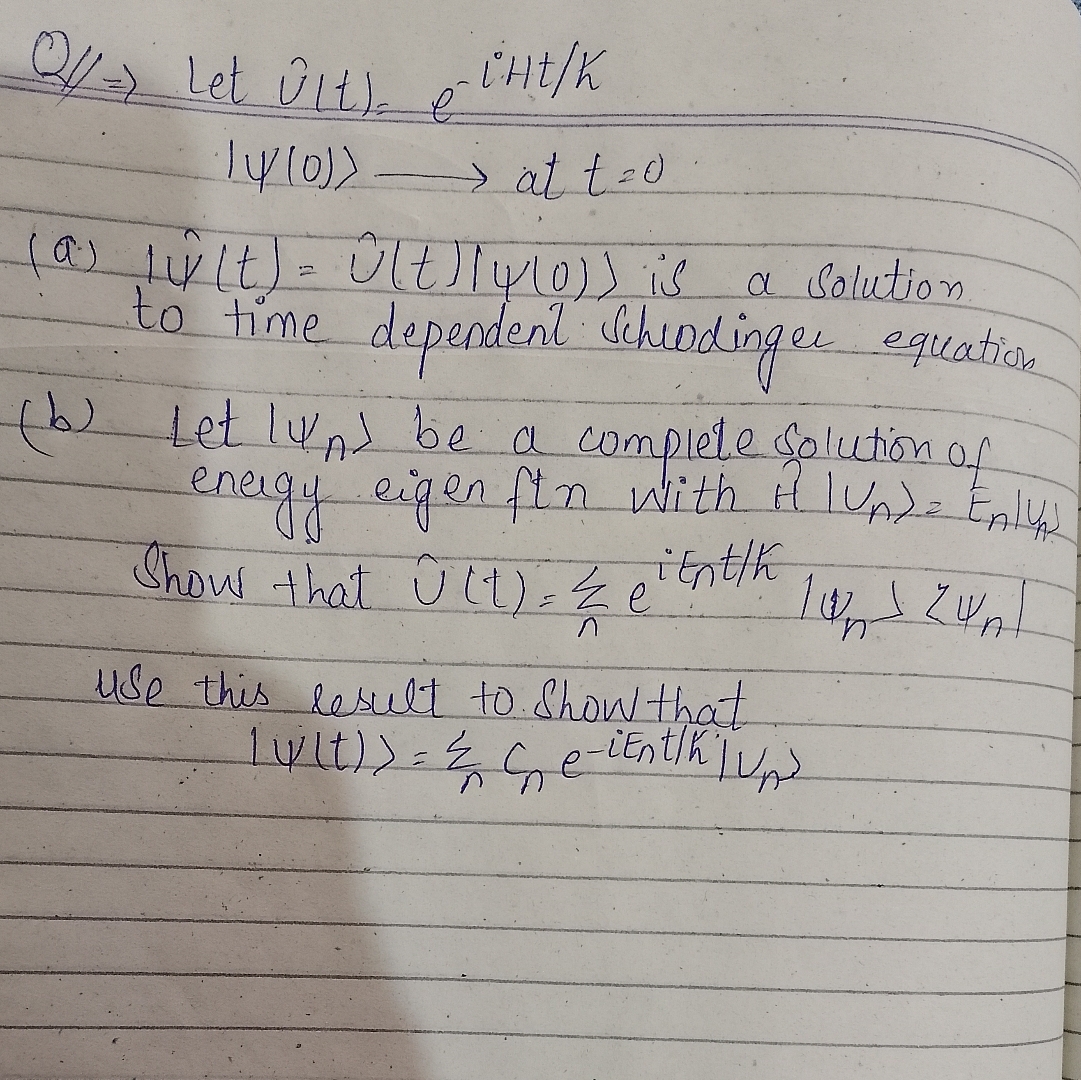 Q//⇒ Let Û(t) = e^-iHt/ℏ
|ψ(0)⟩ ⟶ at t=0
(a) |ψ̂(t) = Û(t)|ψ(0)⟩ is a solution
to time dependent Schrodinger equation
(b) Let |ψn⟩ be a complete solution of
energy eigen ftn with Ĥ |Un⟩ = En|ψn⟩
Show that Û(t) = Σn e^iEnt/ℏ |ψn⟩⟨ψn|
use this result to show that
|ψ(t)⟩ = Σn Cn e^-iEnt/ℏ |Un⟩